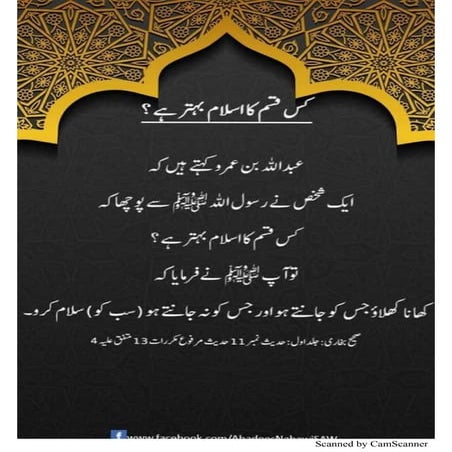 کس قسم کا اسلام بہتر ہے ؟
عبداللہ بن عمرو کہتے ہیں کہ
ایک شخص نے رسول اللہ ﷺ سے پوچھا کہ
کس قسم کا اسلام بہتر ہے ؟
تو آپ ﷺ نے فرمایا کہ
کھانا کھلاؤ جس کو جانتے ہو اور جس کو نہ جانتے ہو ( سب کو ) سلام کرو۔
صحیح بخاری: جلد اول: حدیث نمبر 11 حدیث مرفوع مکررات 13 متفق علیہ 4
www.facebook.com/AhadeesNabawiSAW
Scanned by CamScanner